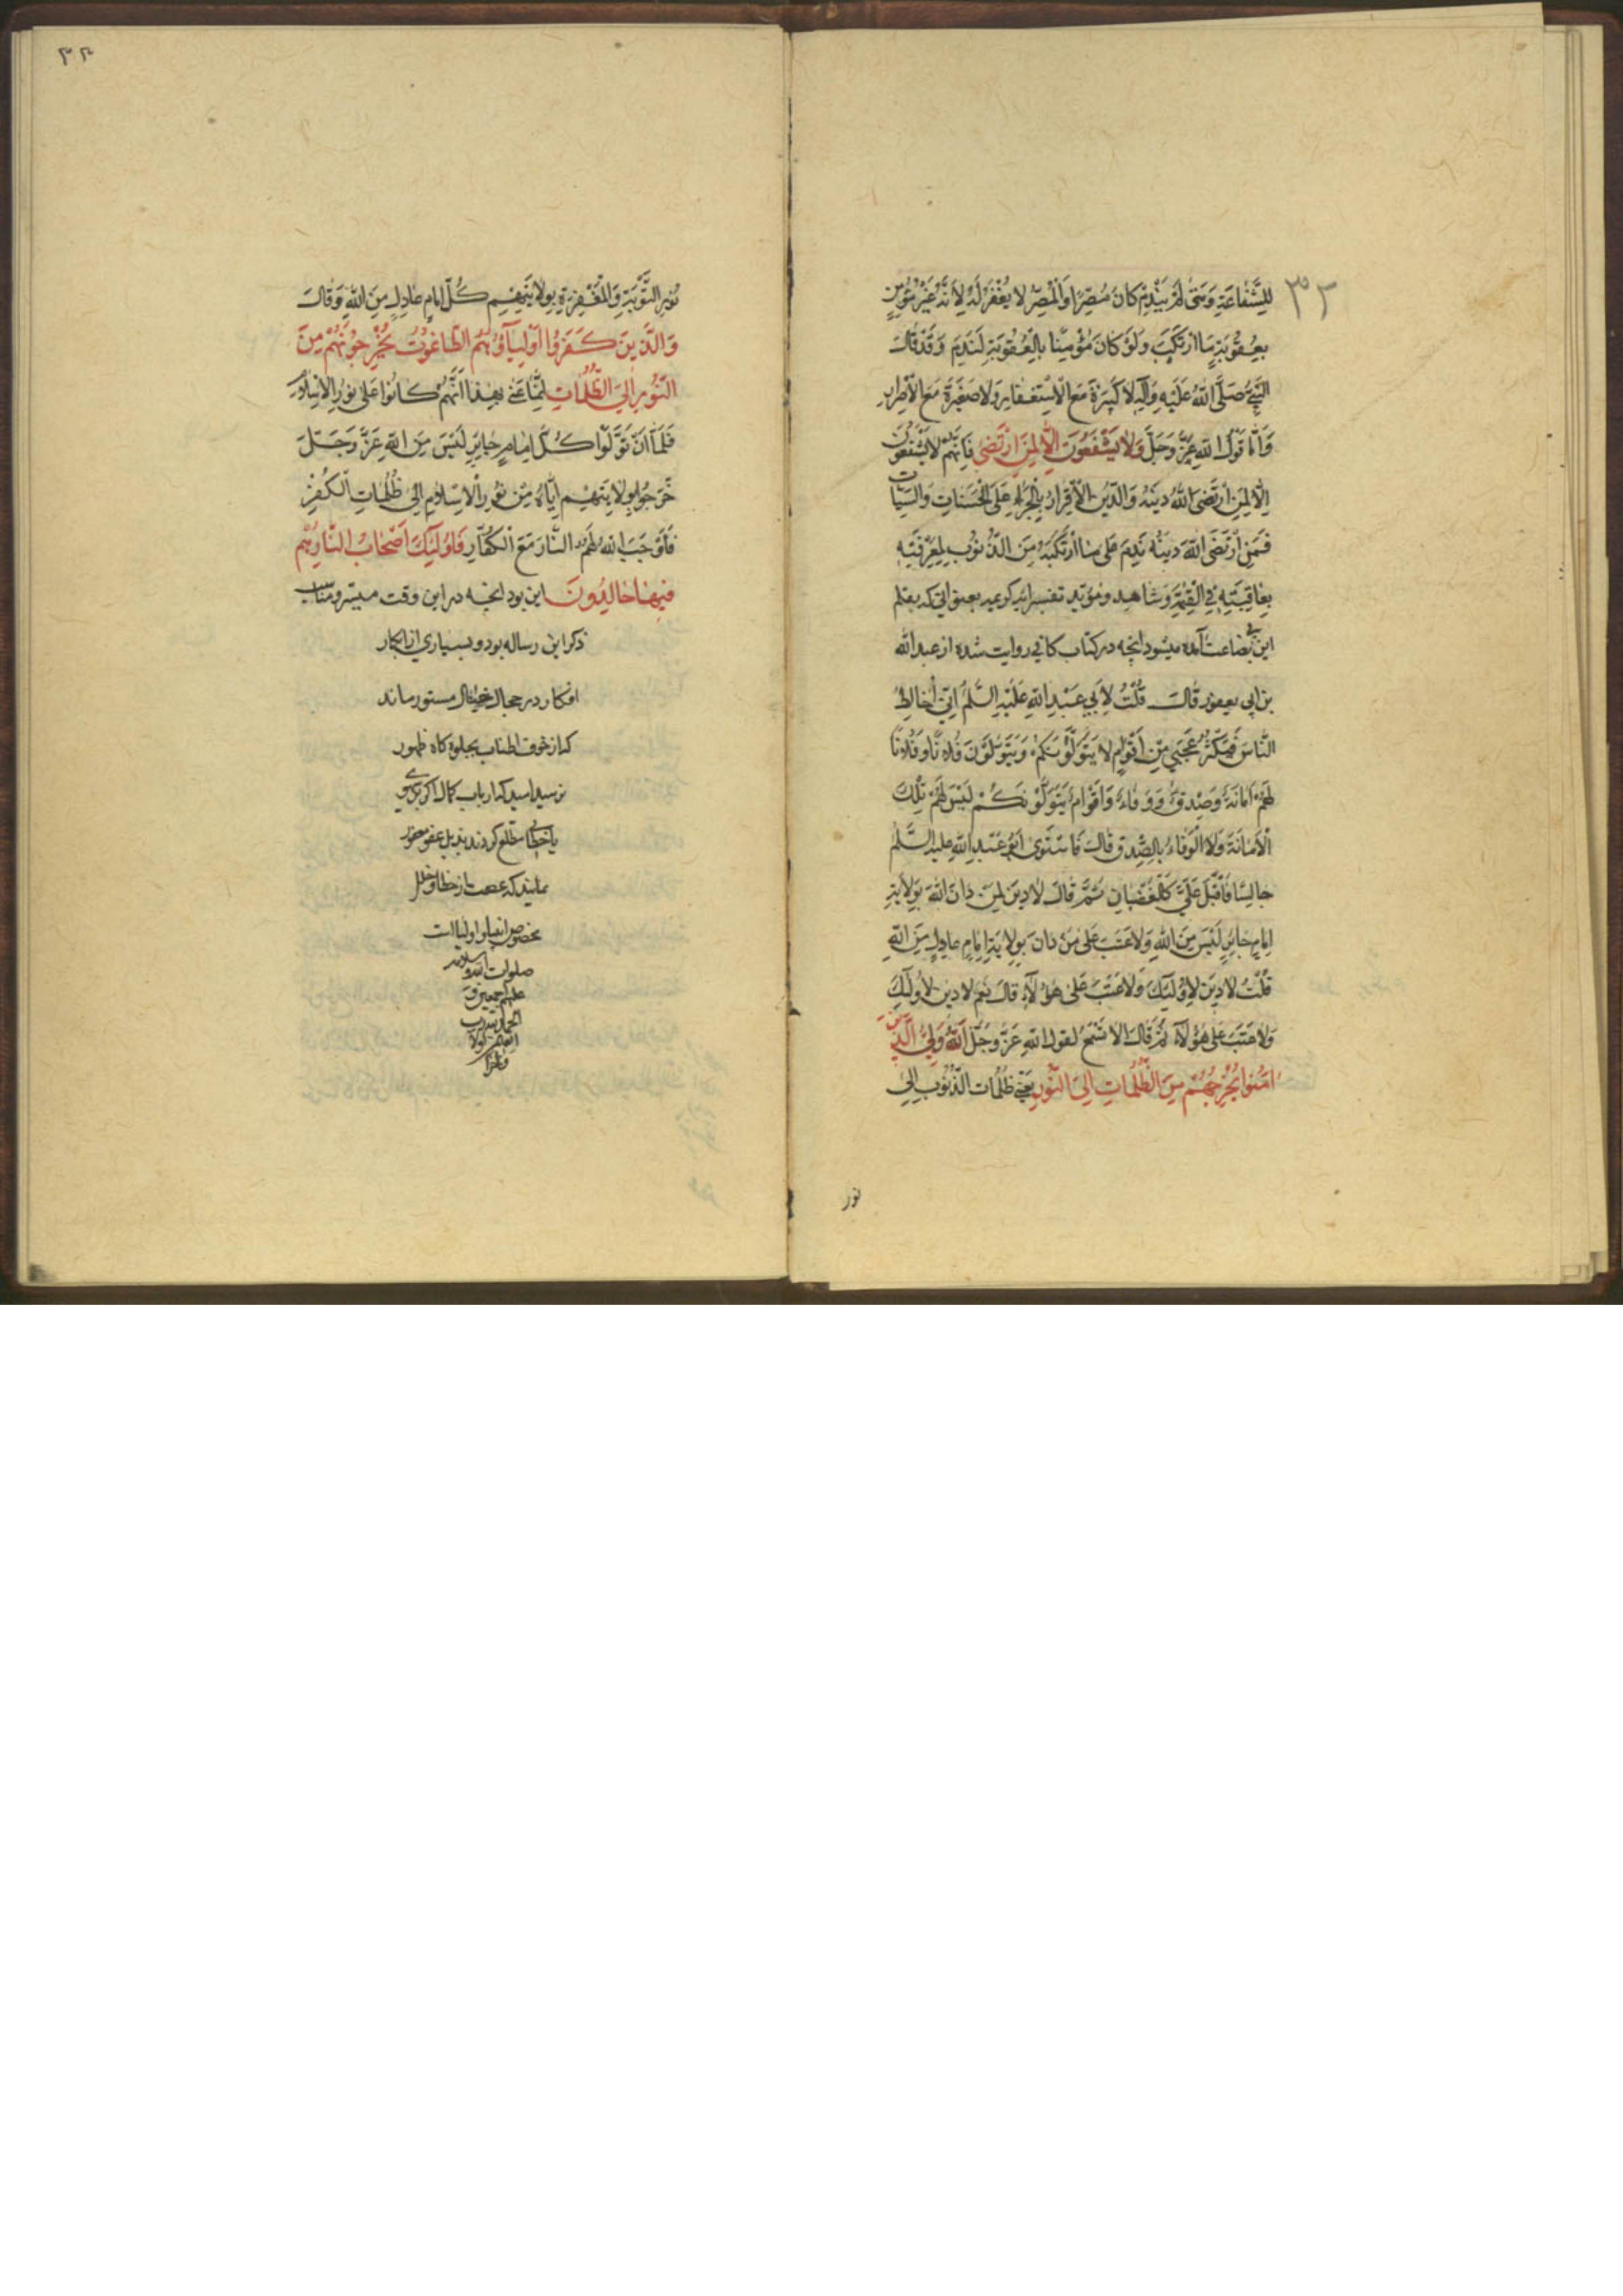 ٣٢
للِشَّفاعَةِ وَمَتى لَمْ يَنْدَمْ كانَ مُصِرًّا وَالْمُصِرُّ لا يُغْفَرُ لَهُ لِاَنَّهُ غَيْرُ مُؤْمِنٍ
بِعُقُوبَةِ مَا ارْتَكَبَ وَلَوْ كانَ مُؤْمِنًا بِالْعُقُوبَةِ لَنَدِمَ وَقَدْ قالَ
النَّبِيُّ صَلَّى اللهُ عَلَيْهِ وَآلِهِ لا كَبيرَةَ مَعَ الْاِسْتِغْفارِ وَلا صَغيرَةَ مَعَ الْاِصْرارِ
وَاَمّا قَوْلُ اللهِ عَزَّ وَجَلَّ وَلا يَشْفَعُونَ اِلّا لِمَنِ ارْتَضى فَاِنَّهُمْ لا يَشْفَعُونَ
اِلّا لِمَنِ ارْتَضَى اللهُ دينَهُ وَالدّينُ الْاِقْرارُ بِالْجَزاءِ عَلَى الْحَسَناتِ وَالسَّيِّئاتِ
فَمَنِ ارْتَضَى اللهُ دينَهُ نَدِمَ عَلى مَا ارْتَكَبَهُ مِنَ الذُّنُوبِ لِمَعْرِفَتِهِ
بِعاقِبَتِهِ فِي الْقِيٰمَةِ وَشاهد ومؤيد تفسير ايه كريمه بعنوانى كه بقلم
اين بى بضاعت آمده ميشود انچه در كتاب كافى روايت شده از عبد الله
بن ابى يعفور قالَ قُلْتُ لِاَبي عَبْدِ اللهِ عَلَيْهِ السَّلَمُ اِنّي اُخالِطُ
النّاسَ فَيَكْثُرُ عَجَبي مِنْ اَقْوامٍ لا يَتَوَلَّوْنَكُمْ وَيَتَوَلَّوْنَ فُلانًا وَفُلانًا
لَهُمْ اَمانَةٌ وَصِدْقٌ وَوَفاءٌ وَاَقْوامٌ يَتَوَلَّوْنَكُمْ لَيْسَ لَهُمْ تِلْكَ
الْاَمانَةُ وَلَا الْوَفاءُ بِالصِّدْقِ قالَ فَاسْتَوى اَبُو عَبْدِ اللهِ عليه السَّلَمُ
جالِسًا فَاَقْبَلَ عَلَيَّ كَالْغَضْبانِ ثُمَّ قالَ لا دينَ لِمَنْ دانَ اللهَ بِوِلايَةِ
اِمامٍ جائِرٍ لَيْسَ مِنَ اللهِ وَلا عَتَبَ عَلى مَنْ دانَ بِوِلايَةِ اِمامٍ عادِلٍ مِنَ اللهِ
قُلْتُ لا دينَ لِاُولئِكَ وَلا عَتَبَ عَلى هؤُلاءِ قالَ نَعَمْ لا دينَ لِاُولئِكَ
وَلا عَتَبَ عَلى هؤُلاءِ ثُمَّ قالَ اَلا تَسْمَعُ لقول اللهِ عَزَّ وَجَلَّ اَللهُ وَلِيُّ الَّذينَ
امَنُوا يُخْرِجُهُمْ مِنَ الظُّلُماتِ اِلَى النُّورِ يَعْني ظُلُماتِ الذُّنُوبِ اِلى
نور
٣٣
نُورِ التَّوْبَةِ وَالْمَغْفِرَةِ بِوِلايَتِهِمْ كُلَّ اِمامٍ عادِلٍ مِنَ اللهِ وَقالَ
وَالَّذينَ كَفَرُوا اَوْلِيآؤُهُمُ الطّاغُوتُ يُخْرِجُونَهُمْ مِنَ
النُّورِ اِلَى الظُّلُماتِ اِنَّما عَنى بِهذا اَنَّهُمْ كانُوا عَلى نُورِ الْاِسْلامِ
فَلَمّا اَنْ تَوَلَّوْا كُلَّ اِمامٍ جائِرٍ لَيْسَ مِنَ اللهِ عَزَّ وَجَلَّ
خَرَجُوا بِوِلايَتِهِمْ اِيّاهُ مِنْ نُورِ الْاِسْلامِ اِلى ظُلُماتِ الْكُفْرِ
فَاَوْجَبَ اللهُ لَهُمُ النّارَ مَعَ الْكُفّارِ فَاُولئِكَ اَصْحابُ النّارِ هُمْ
فيها خالِدُونَ اين بود انچه در اين وقت ميسر ومناسب
ذكر اين رساله بود وبسيارى از ابكار
افكار در حجال خيال مستور ماند
كه از خوف اطناب بجلوه كاه ظهور
نرسيد اميد كه ارباب كمال اكر بر سهوى
يا خطائى مطلع كردند بذيل عفو مستور
نمايند كه عصمت از خطا وخلل
مخصوص انبيا واولياست
صلوات الله وسلامه
عليهم اجمعين و
الحمد لله رب